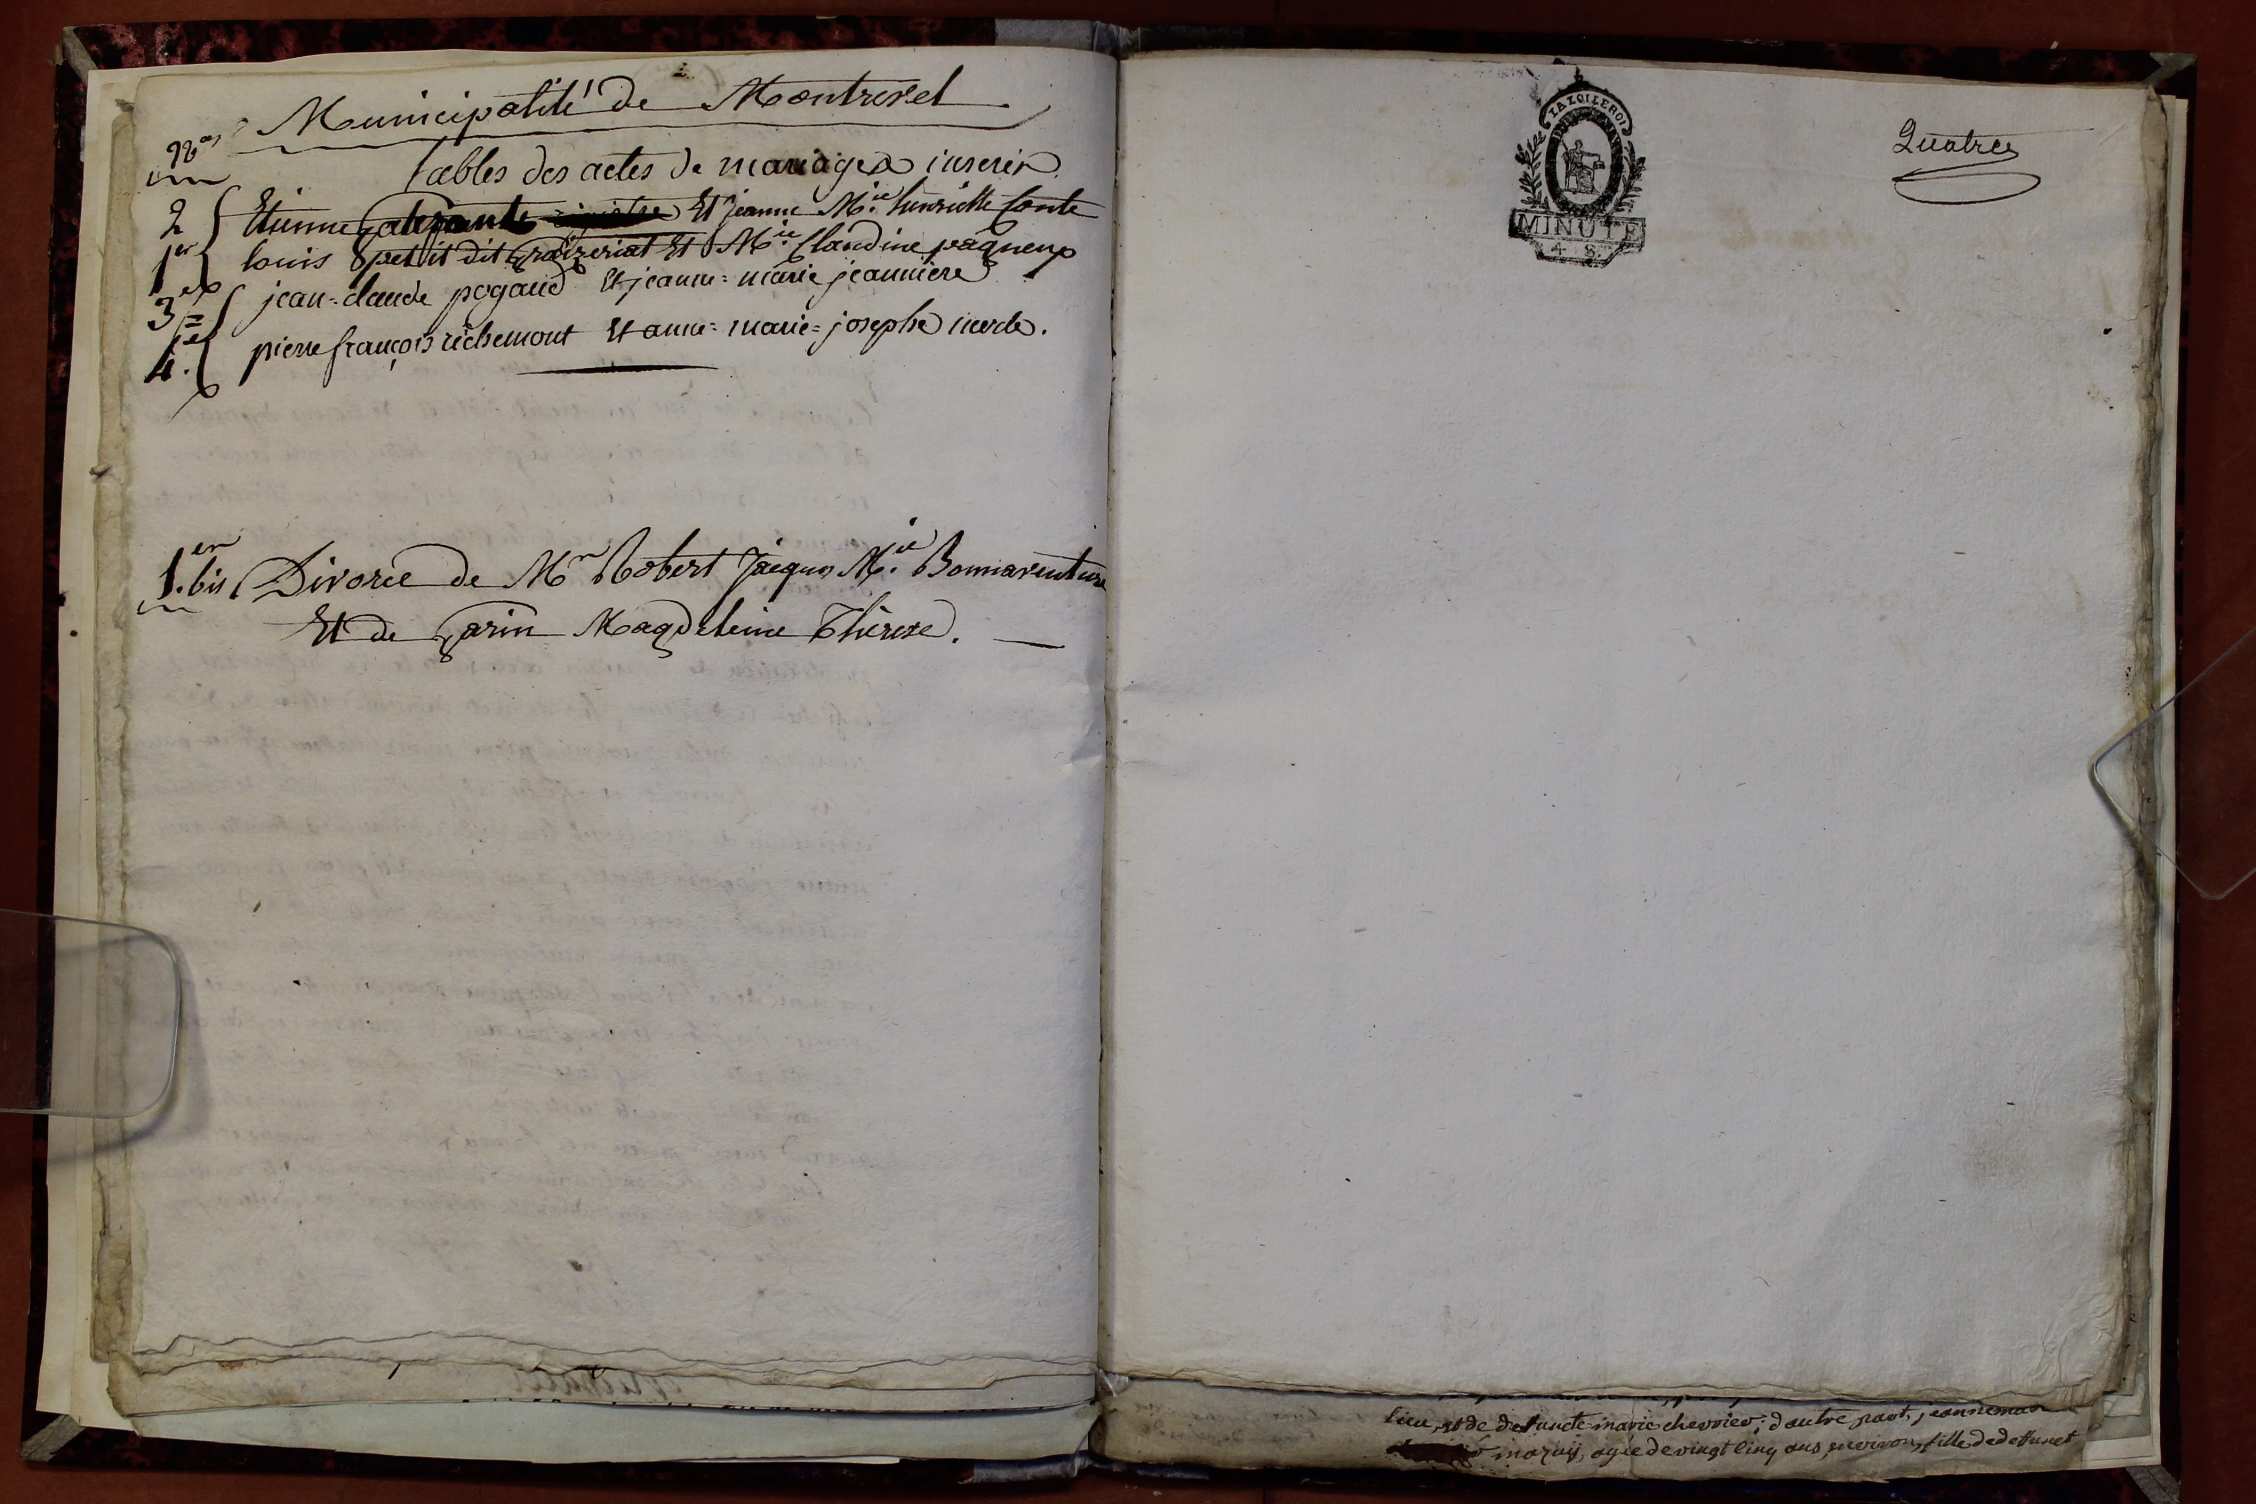 Municipalité de Montrevel
Nos
tables des actes de mariages inserés
2 Etienne et jeanne M.ie henriette Conte
1er louis petit dit graizeriat Et M.ie Claudine pagneux
3e jean=claude pogaud Et jeanne=marie jeanniere
4. pierre françois richemont Et anne=marie=josephe
1.er bis Divorce de Mr Robert Jacques M.ie Bonnaventure
Et de garin Magdeleine Thérese.
LA LOI LE ROI
MINUTE
4 S.
Quatre
lieu, et de defuncte marie chevrier; d'autre part, jeannemarie
mazuy, agée de vingt cinq ans environ, fille de defunct